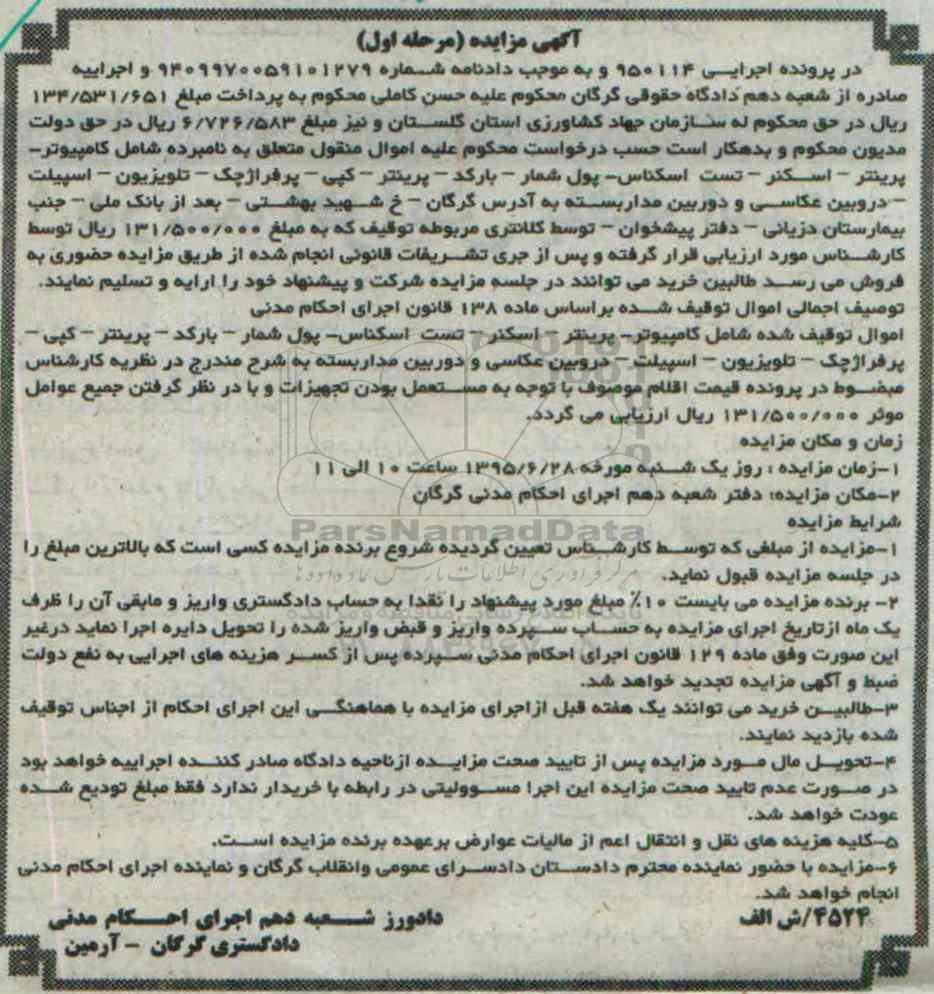 آگهی مزایده (مرحله اول)
در پرونده اجرایی ۹۵۰۱۱۴ و به موجب دادنامه شماره ۹۴۰۹۹۷۰۰۵۹۱۰۱۲۷۹ و اجراییه
صادره از شعبه دهم دادگاه حقوقی گرگان محکوم علیه حسن کاملی محکوم به پرداخت مبلغ ۱۳۴/۵۳۱/۶۵۱
ریال در حق محکوم له سازمان جهاد کشاورزی استان گلستان و نیز مبلغ ۶/۷۲۶/۵۸۳ ریال در حق دولت
مدیون محکوم و بدهکار است حسب درخواست محکوم علیه اموال منقول متعلق به نامبرده شامل کامپیوتر-
پرینتر – اسکنر – تست اسکناس- پول شمار – بارکد – پرینتر – کپی – پرفراژچک – تلویزیون – اسپیلت
– دروبین عکاسی و دوربین مداربسته به آدرس گرگان – خ شهید بهشتی – بعد از بانک ملی – جنب
بیمارستان دزیانی – دفتر پیشخوان – توسط کلانتری مربوطه توقیف که به مبلغ ۱۳۱/۵۰۰/۰۰۰ ریال توسط
کارشناس مورد ارزیابی قرار گرفته و پس از جری تشریفات قانونی انجام شده از طریق مزایده حضوری به
فروش می رسد طالبین خرید می توانند در جلسه مزایده شرکت و پیشنهاد خود را ارایه و تسلیم نمایند.
توصیف اجمالی اموال توقیف شده براساس ماده ۱۳۸ قانون اجرای احکام مدنی
اموال توقیف شده شامل کامپیوتر- پرینتر – اسکنر – تست اسکناس- پول شمار – بارکد – پرینتر – کپی –
پرفراژچک – تلویزیون – اسپیلت – دروبین عکاسی و دوربین مداربسته به شرح مندرج در نظریه کارشناس
مبضوط در پرونده قیمت اقلام موصوف با توجه به مستعمل بودن تجهیزات و با در نظر گرفتن جمیع عوامل
موثر ۱۳۱/۵۰۰/۰۰۰ ریال ارزیابی می گردد.
زمان و مکان مزایده
۱-زمان مزایده : روز یک شنبه مورخه ۱۳۹۵/۶/۲۸ ساعت ۱۰ الی ۱۱
۲-مکان مزایده: دفتر شعبه دهم اجرای احکام مدنی گرگان
شرایط مزایده
ParsNamadData
۱-مزایده از مبلغی که توسط کارشناس تعیین گردیده شروع برنده مزایده کسی است که بالاترین مبلغ را
در جلسه مزایده قبول نماید.
مرکز فرآوری اطلاعات پارس نماد داده ها
۲- برنده مزایده می بایست ۱۰٪ مبلغ مورد پیشنهاد را نقدا به حساب دادگستری واریز و مابقی آن را ظرف
یک ماه ازتاریخ اجرای مزایده به حساب سپرده واریز و قبض واریز شده را تحویل دایره اجرا نماید درغیر
این صورت وفق ماده ۱۲۹ قانون اجرای احکام مدنی سپرده پس از کسر هزینه های اجرایی به نفع دولت
ضبط و آگهی مزایده تجدید خواهد شد.
۳-طالبین خرید می توانند یک هفته قبل ازاجرای مزایده با هماهنگی این اجرای احکام از اجناس توقیف
شده بازدید نمایند.
۴-تحویل مال مورد مزایده پس از تایید صحت مزایده ازناحیه دادگاه صادر کننده اجراییه خواهد بود
در صورت عدم تایید صحت مزایده این اجرا مسوولیتی در رابطه با خریدار ندارد فقط مبلغ تودیع شده
عودت خواهد شد.
۵-کلیه هزینه های نقل و انتقال اعم از مالیات عوارض برعهده برنده مزایده است.
۶-مزایده با حضور نماینده محترم دادستان دادسرای عمومی وانقلاب گرگان و نماینده اجرای احکام مدنی
انجام خواهد شد.
۴۵۲۴/ش الف
دادورز شعبه دهم اجرای احکام مدنی
دادگستری گرگان – آرمین